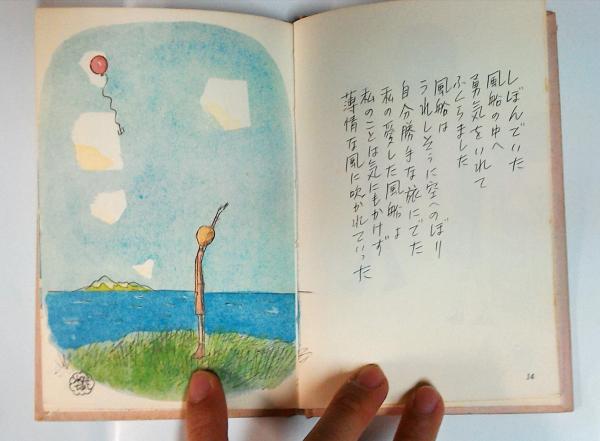 しぼんでいた
風船の中へ
勇気をいれて
ふくらました
風船は
うれしそうに空へのぼり
自分勝手な旅にでた
私の愛した風船よ
私のことは気にもかけず
薄情な風に吹かれていった
14